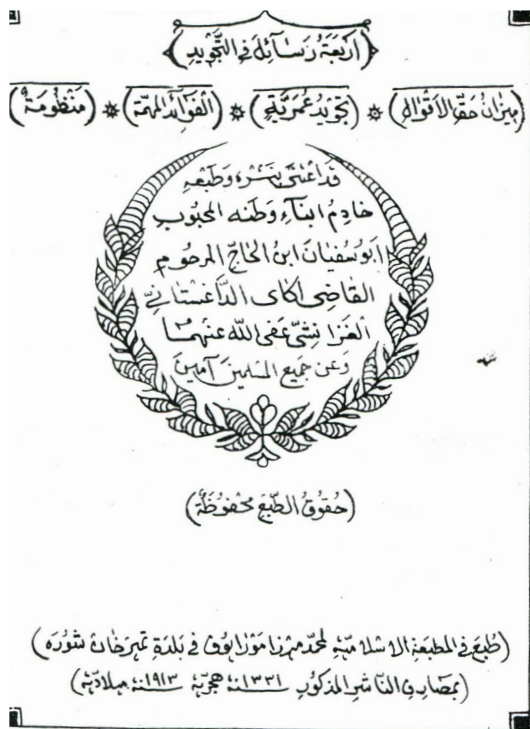 (اَرْبَعَةُ رَسَائِلَ فِي التَّجْوِيدِ)
(مِيزَانُ حَقِّ الْاَقْوَالِ) * (تَجْوِيدُ عُمَرِيَّةٍ) * (الْفَوَائِدُ الْمُهِمَّةُ) * (مَنْظُومَةٌ)
قد اعتنى بنشره وطبعه
خادم ابناء وطنه المحبوب
ابو سفيان ابن الحاج المرحوم
القاضى اكاى الداغستانىّ
الغزانشىّ عفى الله عنهما
وعن جميع المسلمين آمين
(حُقُوقُ الطَّبْعِ مَحْفُوظَةٌ)
(طُبِعَ فى المطبعة الاسلامية لمحمد ميرزا موراوف فى بلدة تمرخان شوره)
(بمصارف الناشر المذكور ١٣٣١ سنة هجرية ١٩١٣ سنة ميلادية)